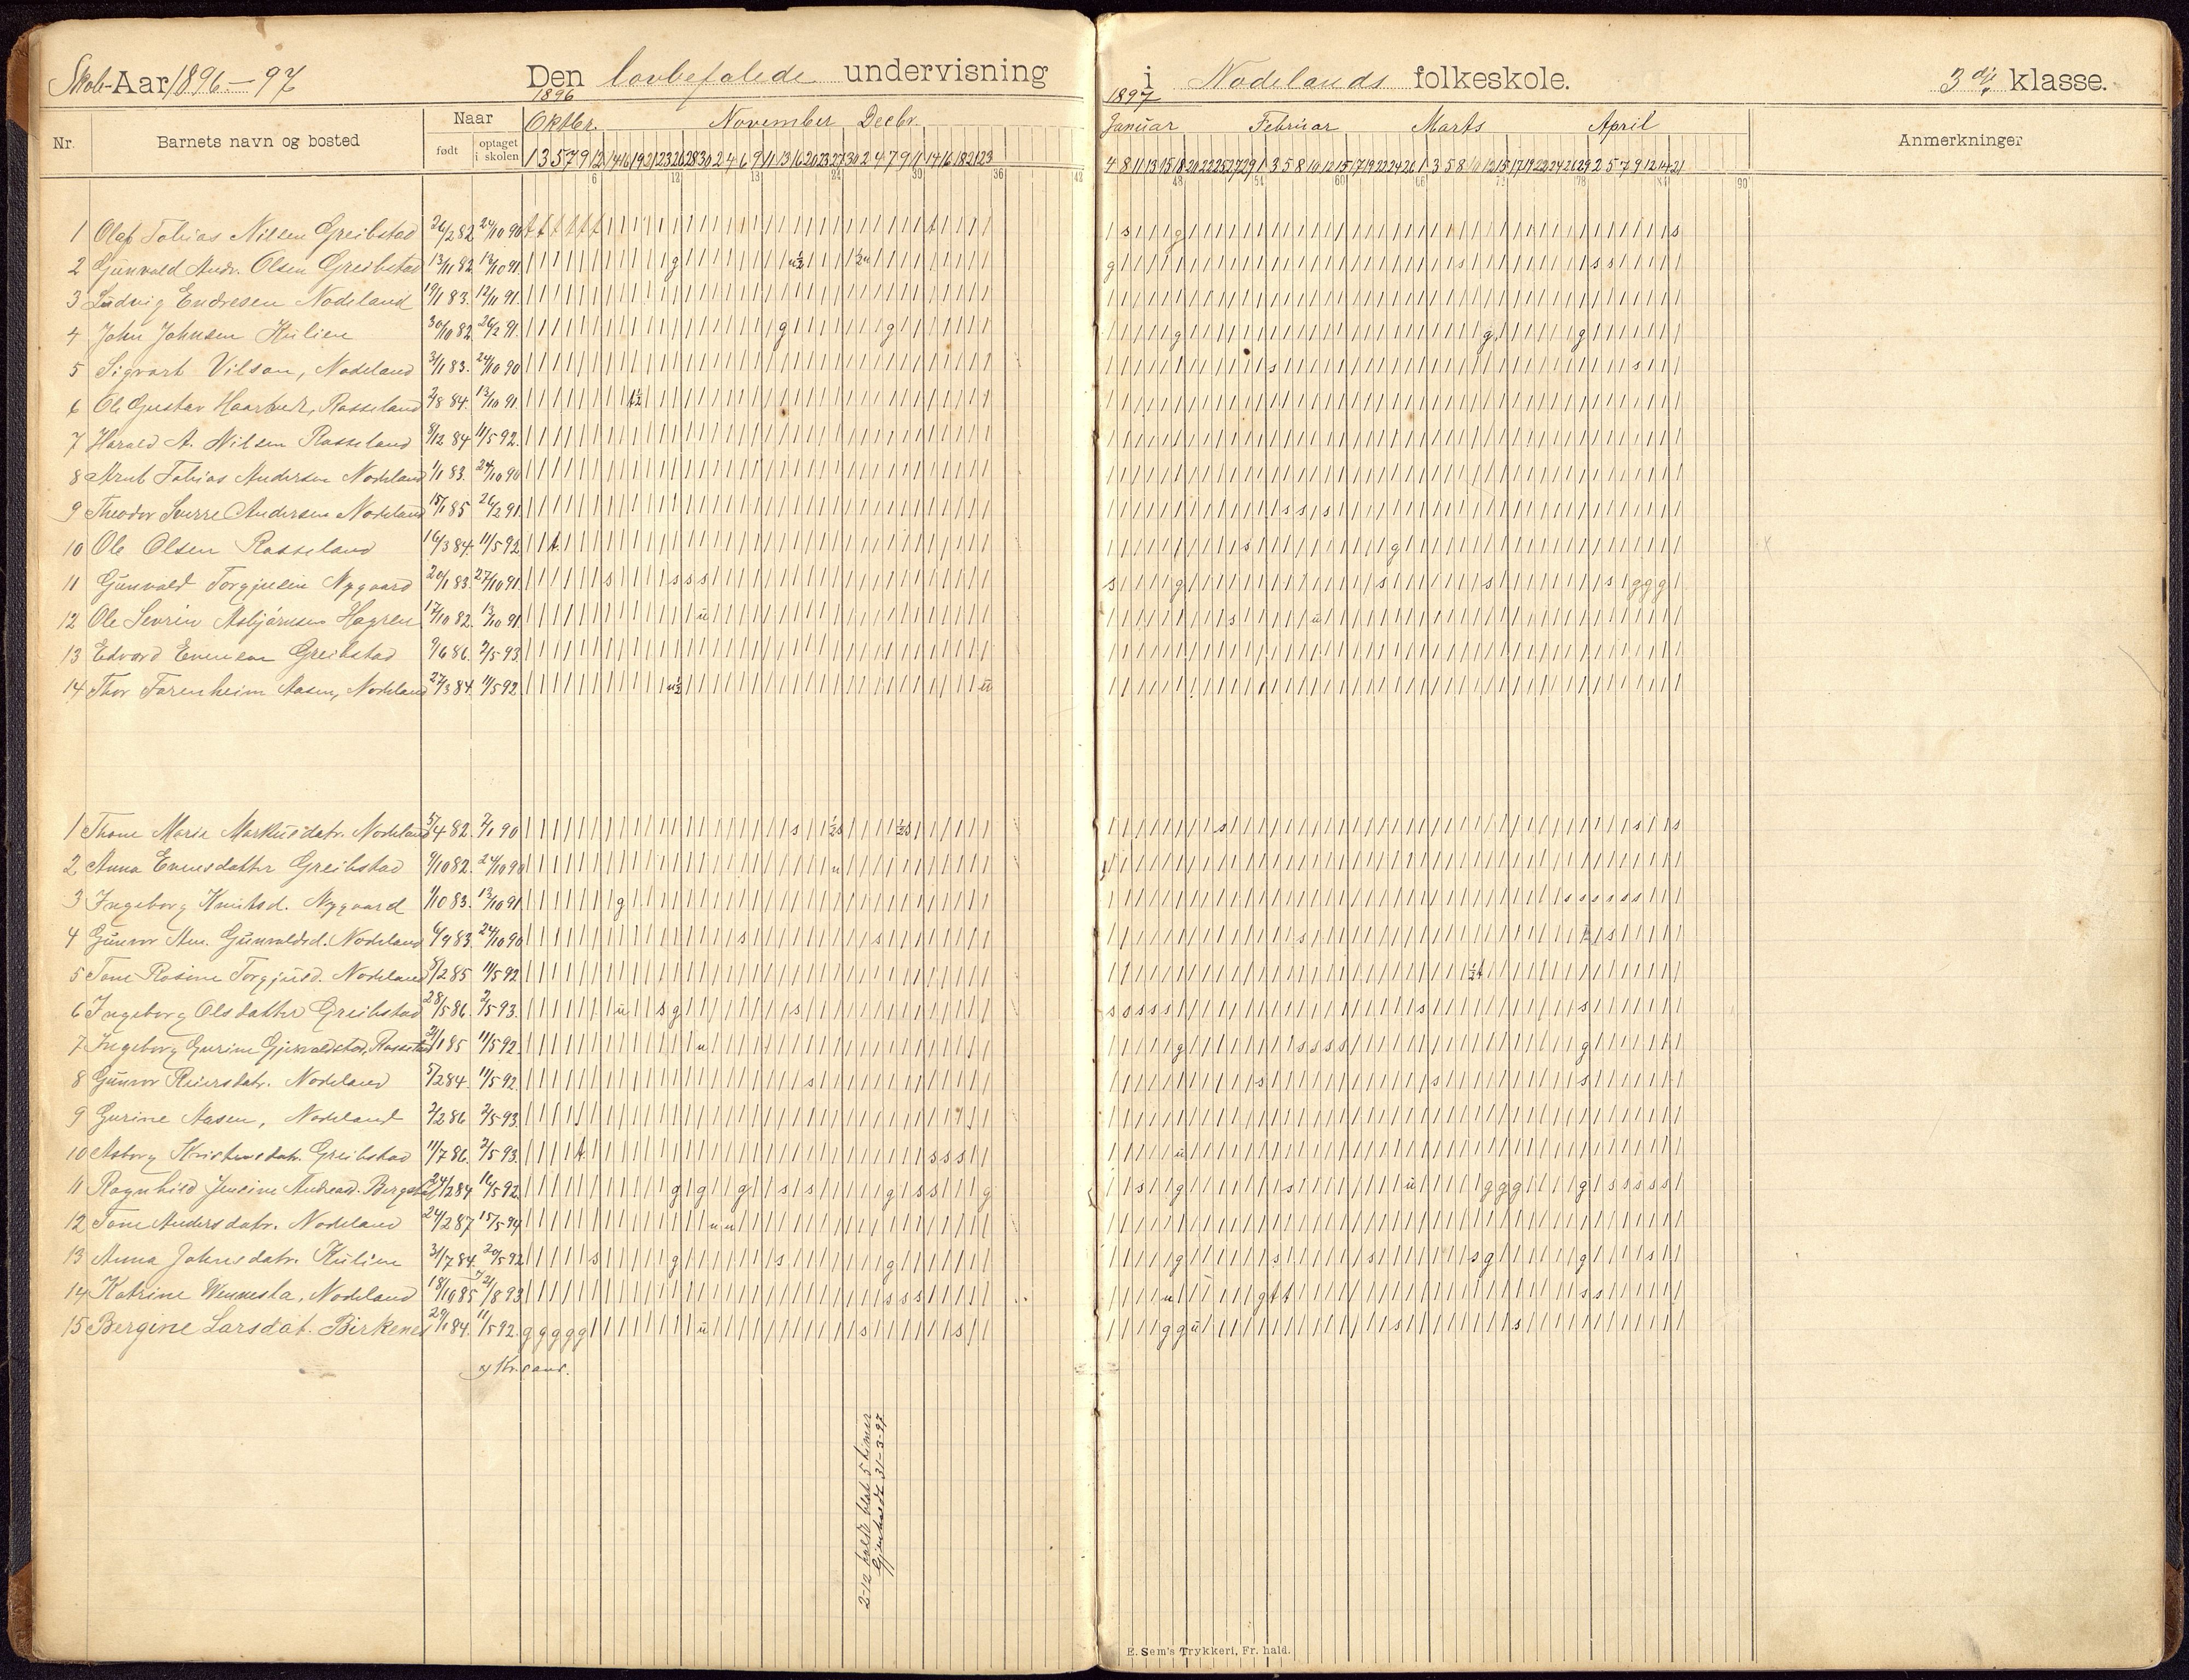 Skole-Aar 1896-97 Den lovbefalede undervisning i Nodelands folkeskole. 3dje klasse.
1896 1897
Nr. Barnets navn og bosted Naar født optaget i skolen Oktbr. November Decbr. Januar Februar Marts April Anmerkninger
1 3 5 7 9 12 14 16 19 21 23 26 28 30 2 4 6 9 11 13 16 20 23 27 30 2 4 7 9 11 14 16 18 21 23
4 8 11 13 15 18 20 22 25 27 29 1 3 5 8 10 12 15 17 19 22 24 26 1 3 5 8 10 12 15 17 19 22 24 26 29 2 5 7 9 12 14 21
6 12 18 24 30 36 42 48 54 60 66 72 78 84 90
1 Olaf Tobias Nilsen Greibstad 26/2 82 24/10 90
2 Gunvald Andr. Olsen Greibstad 13/11 82 13/10 91.
3 Ludvig Endresen Nodeland 19/1 83. 12/11 91.
4 John Johnsen Kulien 30/10 82 26/2 91.
5 Sigvart Vilson, Nodeland 3/1 83. 24/10 90
6 Ole Gustav Haarbudt, Rosseland 2/8 84. 13/10 91.
7 Harald A. Nilsen Rosseland 8/12 84 11/5 92.
8 Arnt Tobias Andersen Nodeland 1/1 83. 24/10 90
9 Theodor Sverre Andersen Nodeland 15/1 85 26/2 91.
10 Ole Olsen Rosseland 16/3 84. 11/5 92
11 Gunvald Torgjusen Nygaard 20/1 83. 27/10 91.
12 Ole Sevrin Asbjörnsen Hagren 17/10 82. 13/10 91.
13 Edvard Evensen Greibstad 9/6 86. 2/5 93.
14 Thor Farenheim Aasen, Nodeland 27/3 84. 11/5 92.
1 Thone Marie Markusdatr. Nodeland 5/4 82. 2/1 90
2 Anna Evensdatter Greibstad 9/10 82. 24/10 90
3 Ingeborg Knutsd. Nygaard 1/10 83. 13/10 91
4 Gunvor An. Gunvaldsd. Nodeland 6/9 83. 24/10 90
5 Tone Rosine Torgjusd. Nodeland 8/2 85 11/5 92.
6 Ingeborg Olsdatter Greibstad 28/5 86. 2/5 93.
7 Ingeborg Gurine 11/5 92.
8 Gunvor Reiersdatr. Nodeland 5/2 84. 11/5 92.
9 Gurine Aasen, Nodeland 2/2 86 2/5 93.
10 Asborg Kristensdatr. Greibstad 11/7 86. 2/5 93.
11 Ragnhild Jensine Andreasd. 24/2 84 16/5 92.
12 Tone Andersdatr. Nodeland 24/2 87 15/5 94
13 Anna Johnsdatr. Kulien 31/7 84. 20/5 92
14 Katrine Wennesla, Nodeland 18/10 85 21/8 93
15 Bergine Larsdat. Birkenes 29/1 84. 11/5 92.
x) Kr.sand.
2-12 holdt blot 5 timer
Gjenholdt 31-3-97
E. Sem's Trykkeri, Fr. hald.